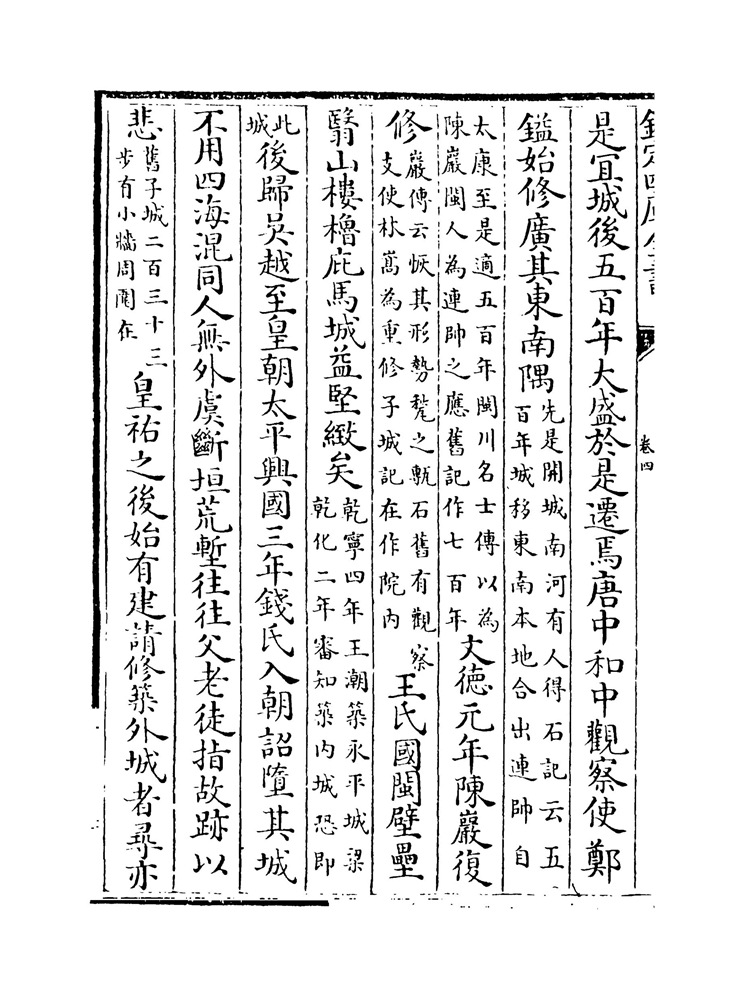 欽定四庫全書
卷四
是宜城後五百年大盛於是遷焉唐中和中觀察使鄭
鎰始修廣其東南隅先是開城南河有人得石記云五百年城移東南本地合出連帥自
太康至是適五百年閩川名士傳以為陳巖閩人為連帥之應舊記作七百年文德元年陳巖復
修巖傳云恢其形勢甃之甎石舊有觀察支使林蒿為重修子城記在作院内王氏國閩壁壘
翳山樓櫓庇馬城益堅緻矣乾寧四年王潮築永平城梁乾化二年審知築内城恐即
此城後歸吳越至皇朝太平興國三年錢氏入朝詔墮其城
不用四海混同人無外虞斷垣荒塹往往父老徒指故跡以
悲舊子城二百三十三步有小牆周圍在皇祐之後始有建請修築外城者尋亦